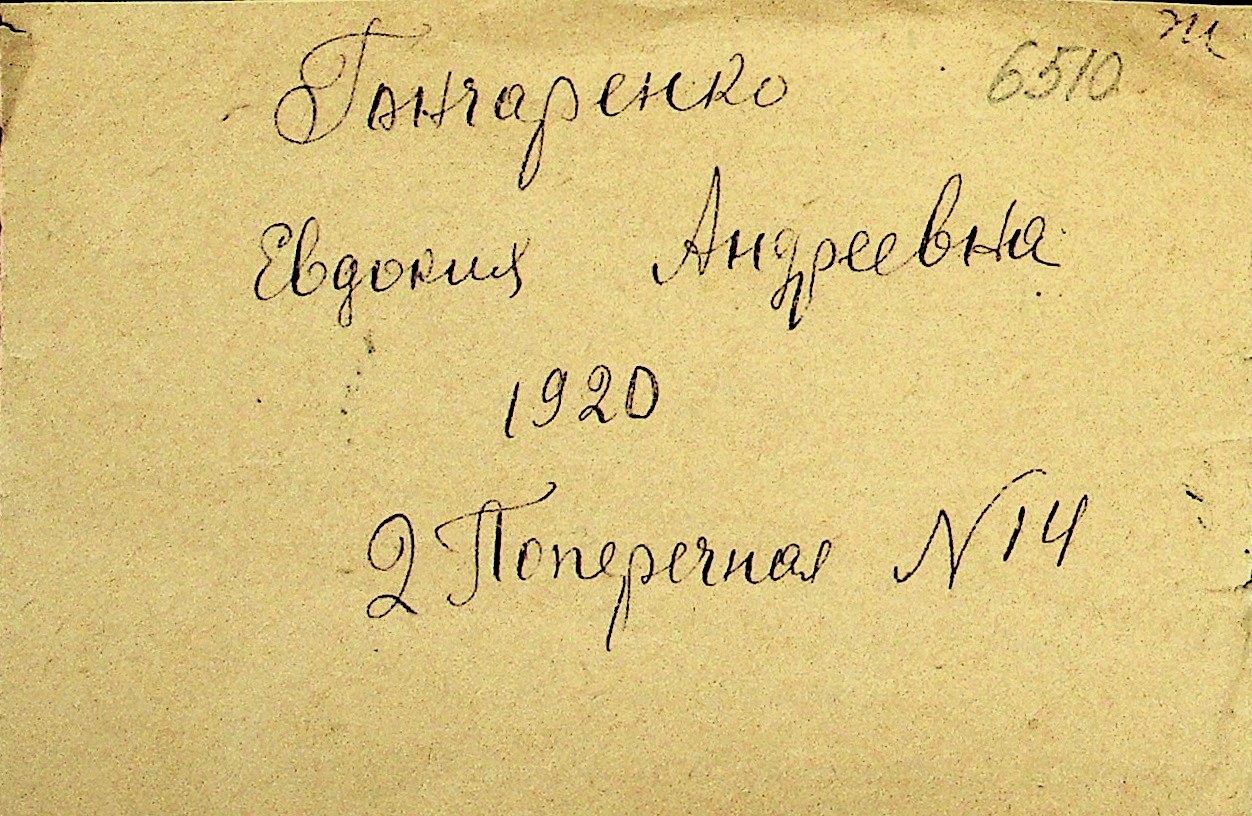 Гончаренко 6510 ж
Евдокия Андреевна
1920
2 Поперечная N 14